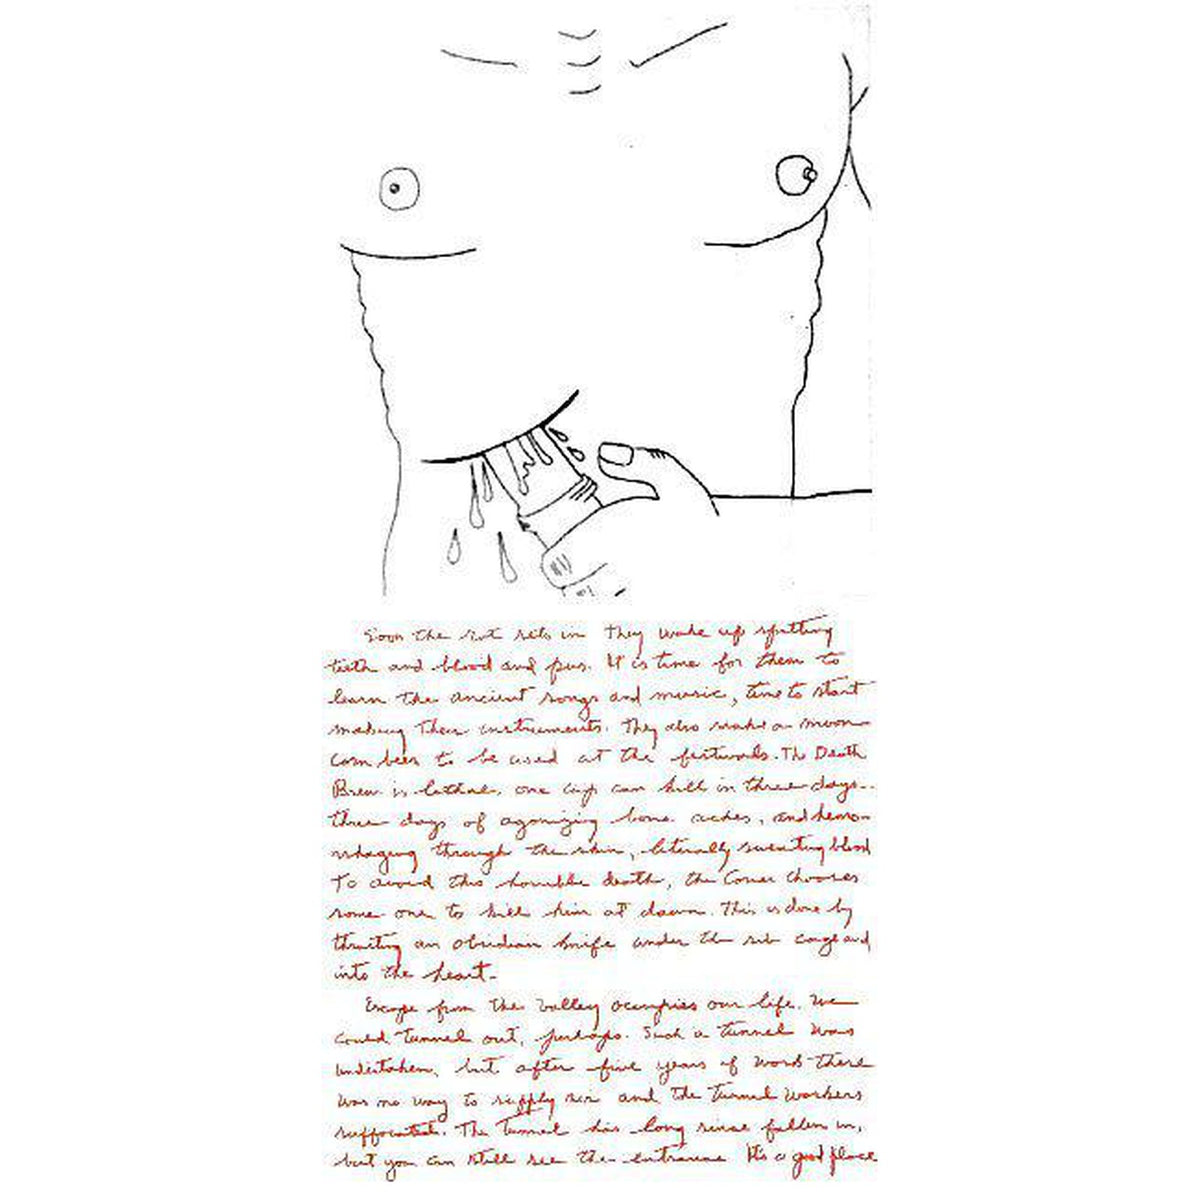 Soon the rot sets in They wake up spitting
teeth and blood and pus. It is time for them to
learn the ancient songs and music, time to start
making their instruments. They also make a moon
corn beer to be used at the festivals. The Death
Brew is lethal, one cup can kill in three days--
three days of agonizing bone aches, and hemo-
rrhaging through the skin, literally sweating blood
To avoid this horrible death, the Comer chooses
some one to kill him at dawn. This is done by
thrusting an obsidian knife under the rib cage and
into the heart-
Escape from the Valley occupies our life. We
could tunnel out, perhaps. Such a tunnel was
undertaken, but after five years of work there
was no way to supply air and the tunnel workers
suffocated. The tunnel has long since fallen in,
but you can still see the entrance It's a good place